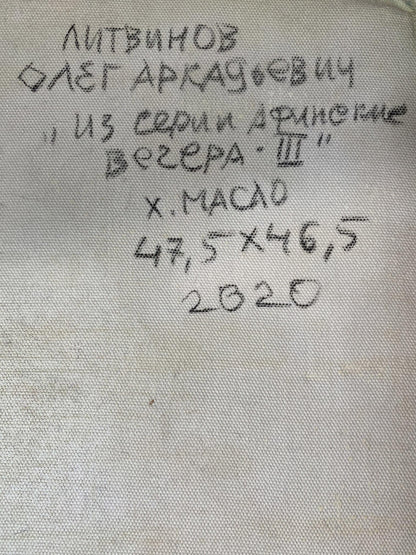 ЛИТВИНОВ
ОЛЕГ АРКАДЬЕВИЧ
„ИЗ СЕРИИ АФИНСКИЕ
ВЕЧЕРА · III"
Х. МАСЛО
47,5 X 46,5
2020